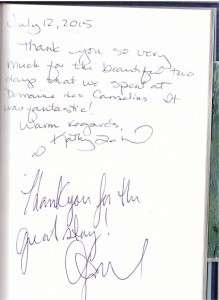 July 12, 2015
Thank you so very
much for the beautiful two
days that we spent at
Domaine des Camelias It
was fantastic!
Warm regards,
Kathy
Thank you for the
great stay!